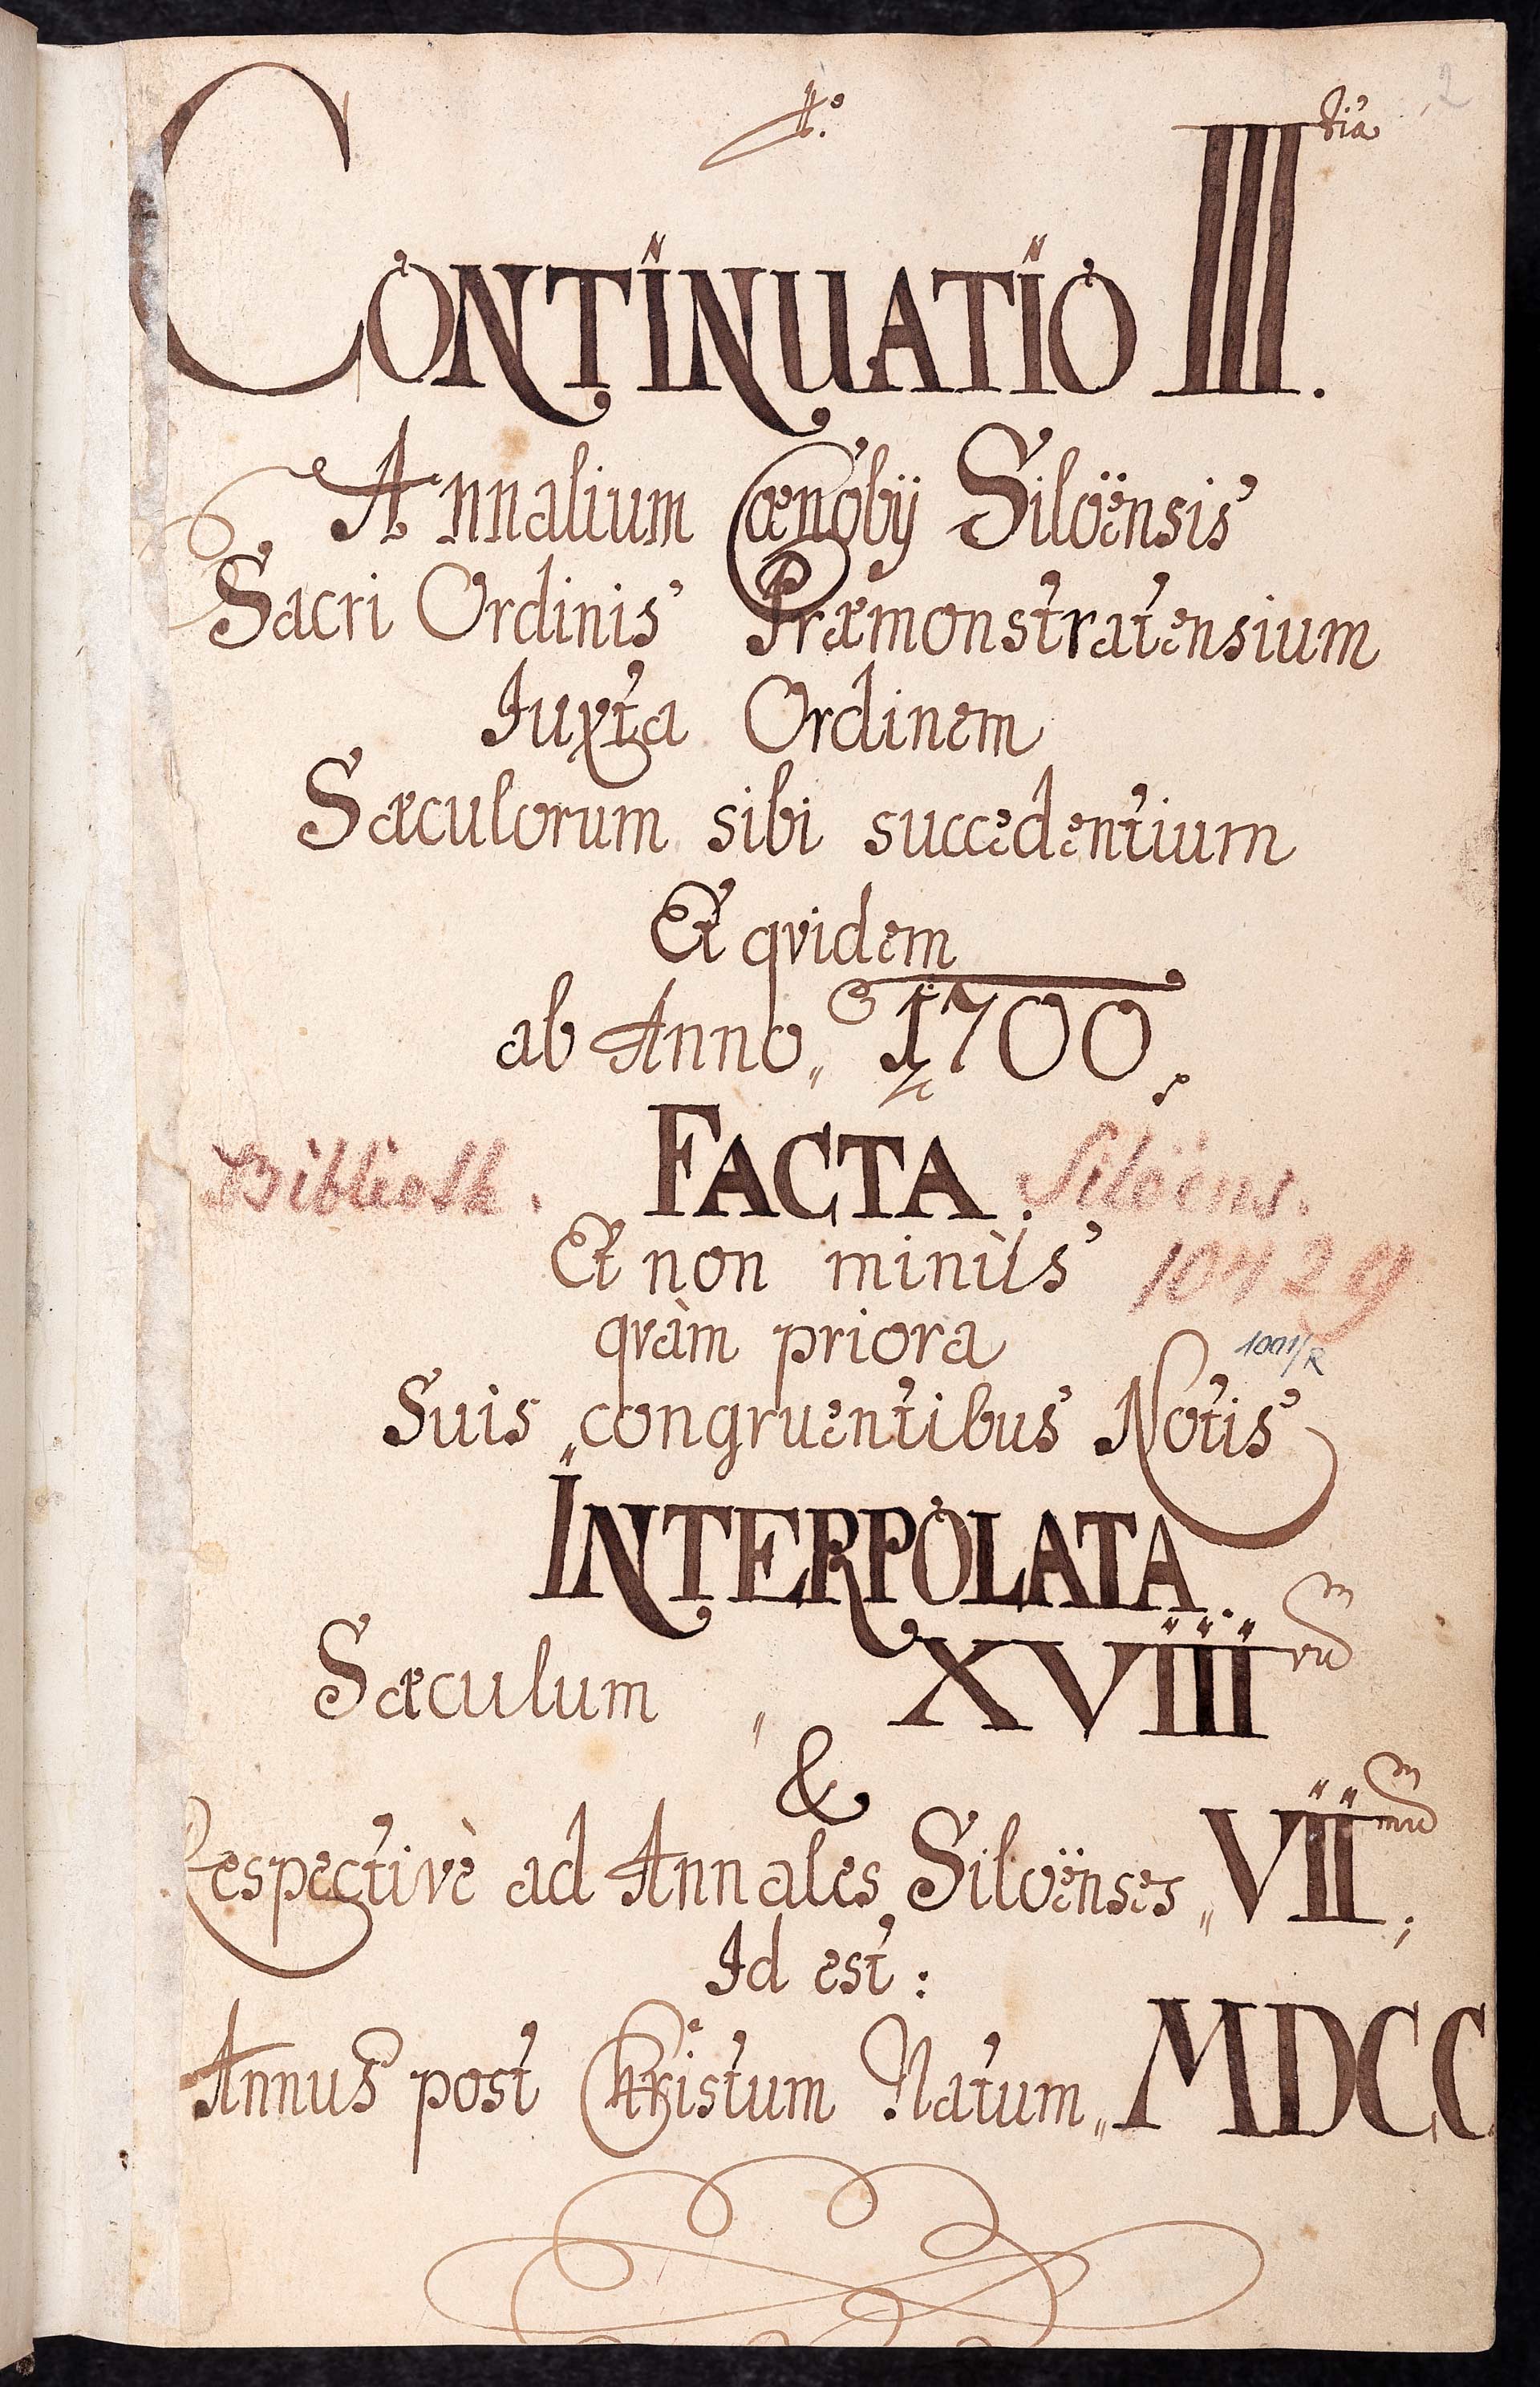 2
CONTINUATIO III.tia
Annalium Cœnobij Siloënsis
Sacri Ordinis Præmonstratensium
Iuxta Ordinem
Sæculorum sibi succedentium
Et qvidem
ab Anno„ 1700.
Biblioth. FACTA. Siloëns.
Et non minùs 10429
qvàm priora
1001/R
Suis congruentibus Notis
INTERPOLATA.
Sæculum „ XVIII vum
&
Respectivè ad Annales Siloënses„ VII mum;
Id est:
Annus post Christum Natum„ MDCC.